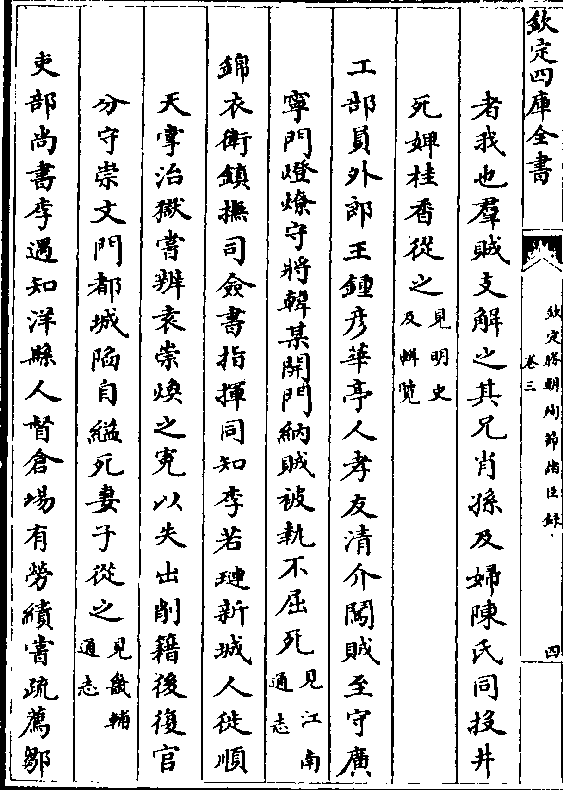 欽定四庫全書
欽定勝朝殉節諸臣録
卷三
四
者我也羣賊支解之其兄肖孫及婦陳氏同投井
死婢桂香從之見明史及輯覽
工部員外郎王鍾彦華亭人孝友清介闖賊至守廣
寧門燈燎守將韓某開門納賊被執不屈死見江南通志
錦衣衛鎮撫司僉書指揮同知李若璉新城人徙順
天掌治獄嘗辨袁崇煥之寃以失出削籍後復官
分守崇文門都城陷自縊死妻子從之見畿輔通志
吏部尚書李遇知洋縣人督倉場有勞績嘗疏薦鄒